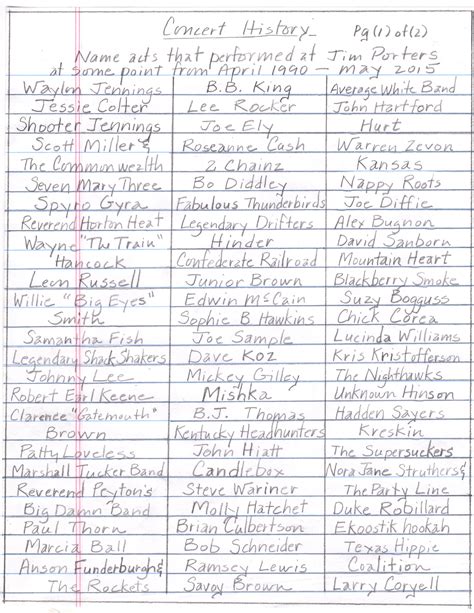 Concert History Pg(1) of (2)
Name acts that performed at Jim Porters
at some point from April 1990 – May 2015
Waylon Jennings
Jessie Colter
Shooter Jennings
Scott Miller &
The Commonwealth
Seven Mary Three
Spyro Gyra
Reverend Horton Heat
Wayne "The Train"
Hancock
Leon Russell
Willie "Big Eyes"
Smith
Samantha Fish
Legendary Shack Shakers
Johnny Lee
Robert Earl Keene
Clarence "Gatemouth"
Brown
Patty Loveless
Marshall Tucker Band
Reverend Peyton's
Big Damn Band
Paul Thorn
Marcia Ball
Anson Funderburgh &
The Rockets
B.B. King
Lee Rocker
Joe Ely
Roseanne Cash
2 Chainz
Bo Diddley
Fabulous Thunderbirds
Legendary Drifters
Hinder
Confederate Railroad
Junior Brown
Edwin McCain
Sophie B Hawkins
Joe Sample
Dave Koz
Mickey Gilley
Mishka
B.J. Thomas
Kentucky Headhunters
John Hiatt
Candlebox
Steve Wariner
Molly Hatchet
Brian Culbertson
Bob Schneider
Ramsey Lewis
Savoy Brown
Average White Band
John Hartford
Hurt
Warren Zevon
Kansas
Nappy Roots
Joe Diffie
Alex Bugnon
David Sanborn
Mountain Heart
Blackberry Smoke
Suzy Bogguss
Chick Corea
Lucinda Williams
Kris Kristofferson
The Nighthawks
Unknown Hinson
Hadden Sayers
Kreskin
The Supersuckers
Nora Jane Struthers &
The Party Line
Duke Robillard
Ekoostik hookah
Texas Hippie
Coalition
Larry Coryell